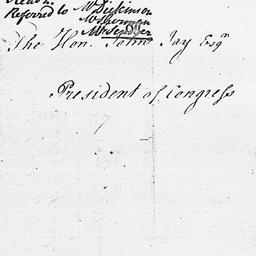 Read
Referred to Mr Dickinson
Mr Sherman
The Hon. John Jay Esqr
President of Congress